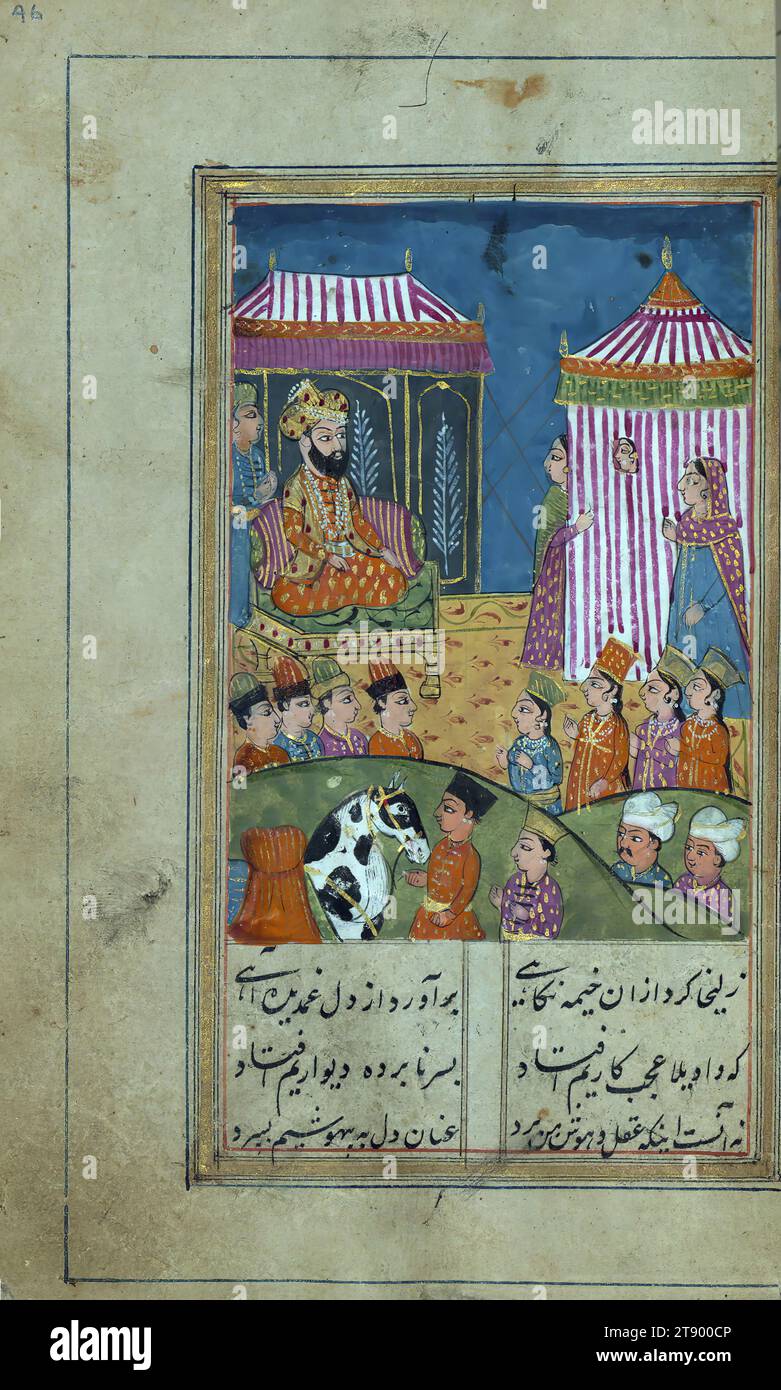 زلیخا کرد ازان خیمه نگاهی برآورد از دل غمدیده آهی
که واویلا عجب کاریم افتاد بسر نابرده دیواریم افتاد
نه آنست اینکه عقل و هوش من برد عنان دل به بیهوشیم بسپرد
alamy
alamy
Image ID: 2T900CP
www.alamy.com